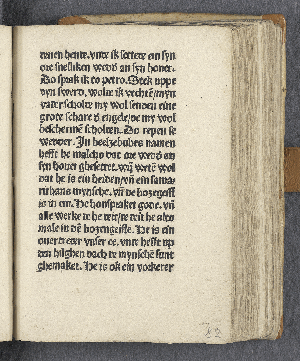 renen hente. vnte ik settete em syn
ore snelliken wedd an syn houet.
Do sprak ik to petro. Stek vppe
dyn swerd. wolte ik vechtē/myn
vater scholte my wol senden eine
grote schare d engele/de my wol
beschermē scholten. Do repen se
wedder. In beelzebubes namen
hefft he malcho dat ore wedd an
syn houet ghesettet. wy wetē wol
dat he is ein heiden/vn ein sama-
rithans mynsche. vn de bozegeist
is in em. He honspraket gode. vn
alle werke te he teit/te teit he alto
male in dē bozengeiste. He is ein
ouertreter vnser ee. vnte hefft vp
den hilghen dach te mynschē sunt
ghemaket. He is ok ein vorkerer